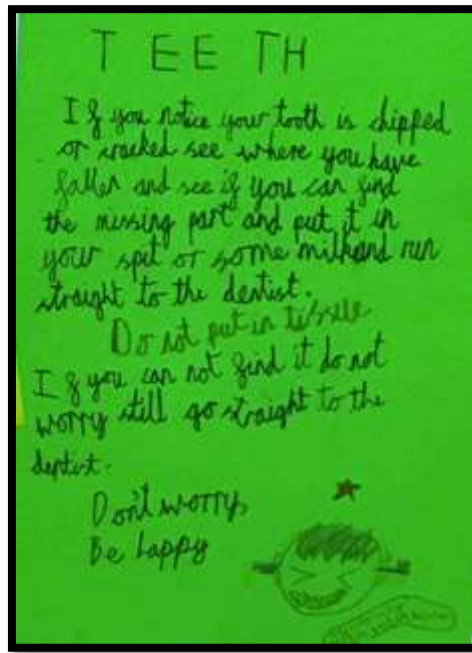 TEETH
If you notice your tooth is chipped
or cracked see where you have
fallen and see if you can find
the missing part and put it in
your spit or some milk and run
straight to the dentist.
Do not put in tissue
If you can not find it do not
worry still go straight to the
dentist.
Don't worry,
Be happy